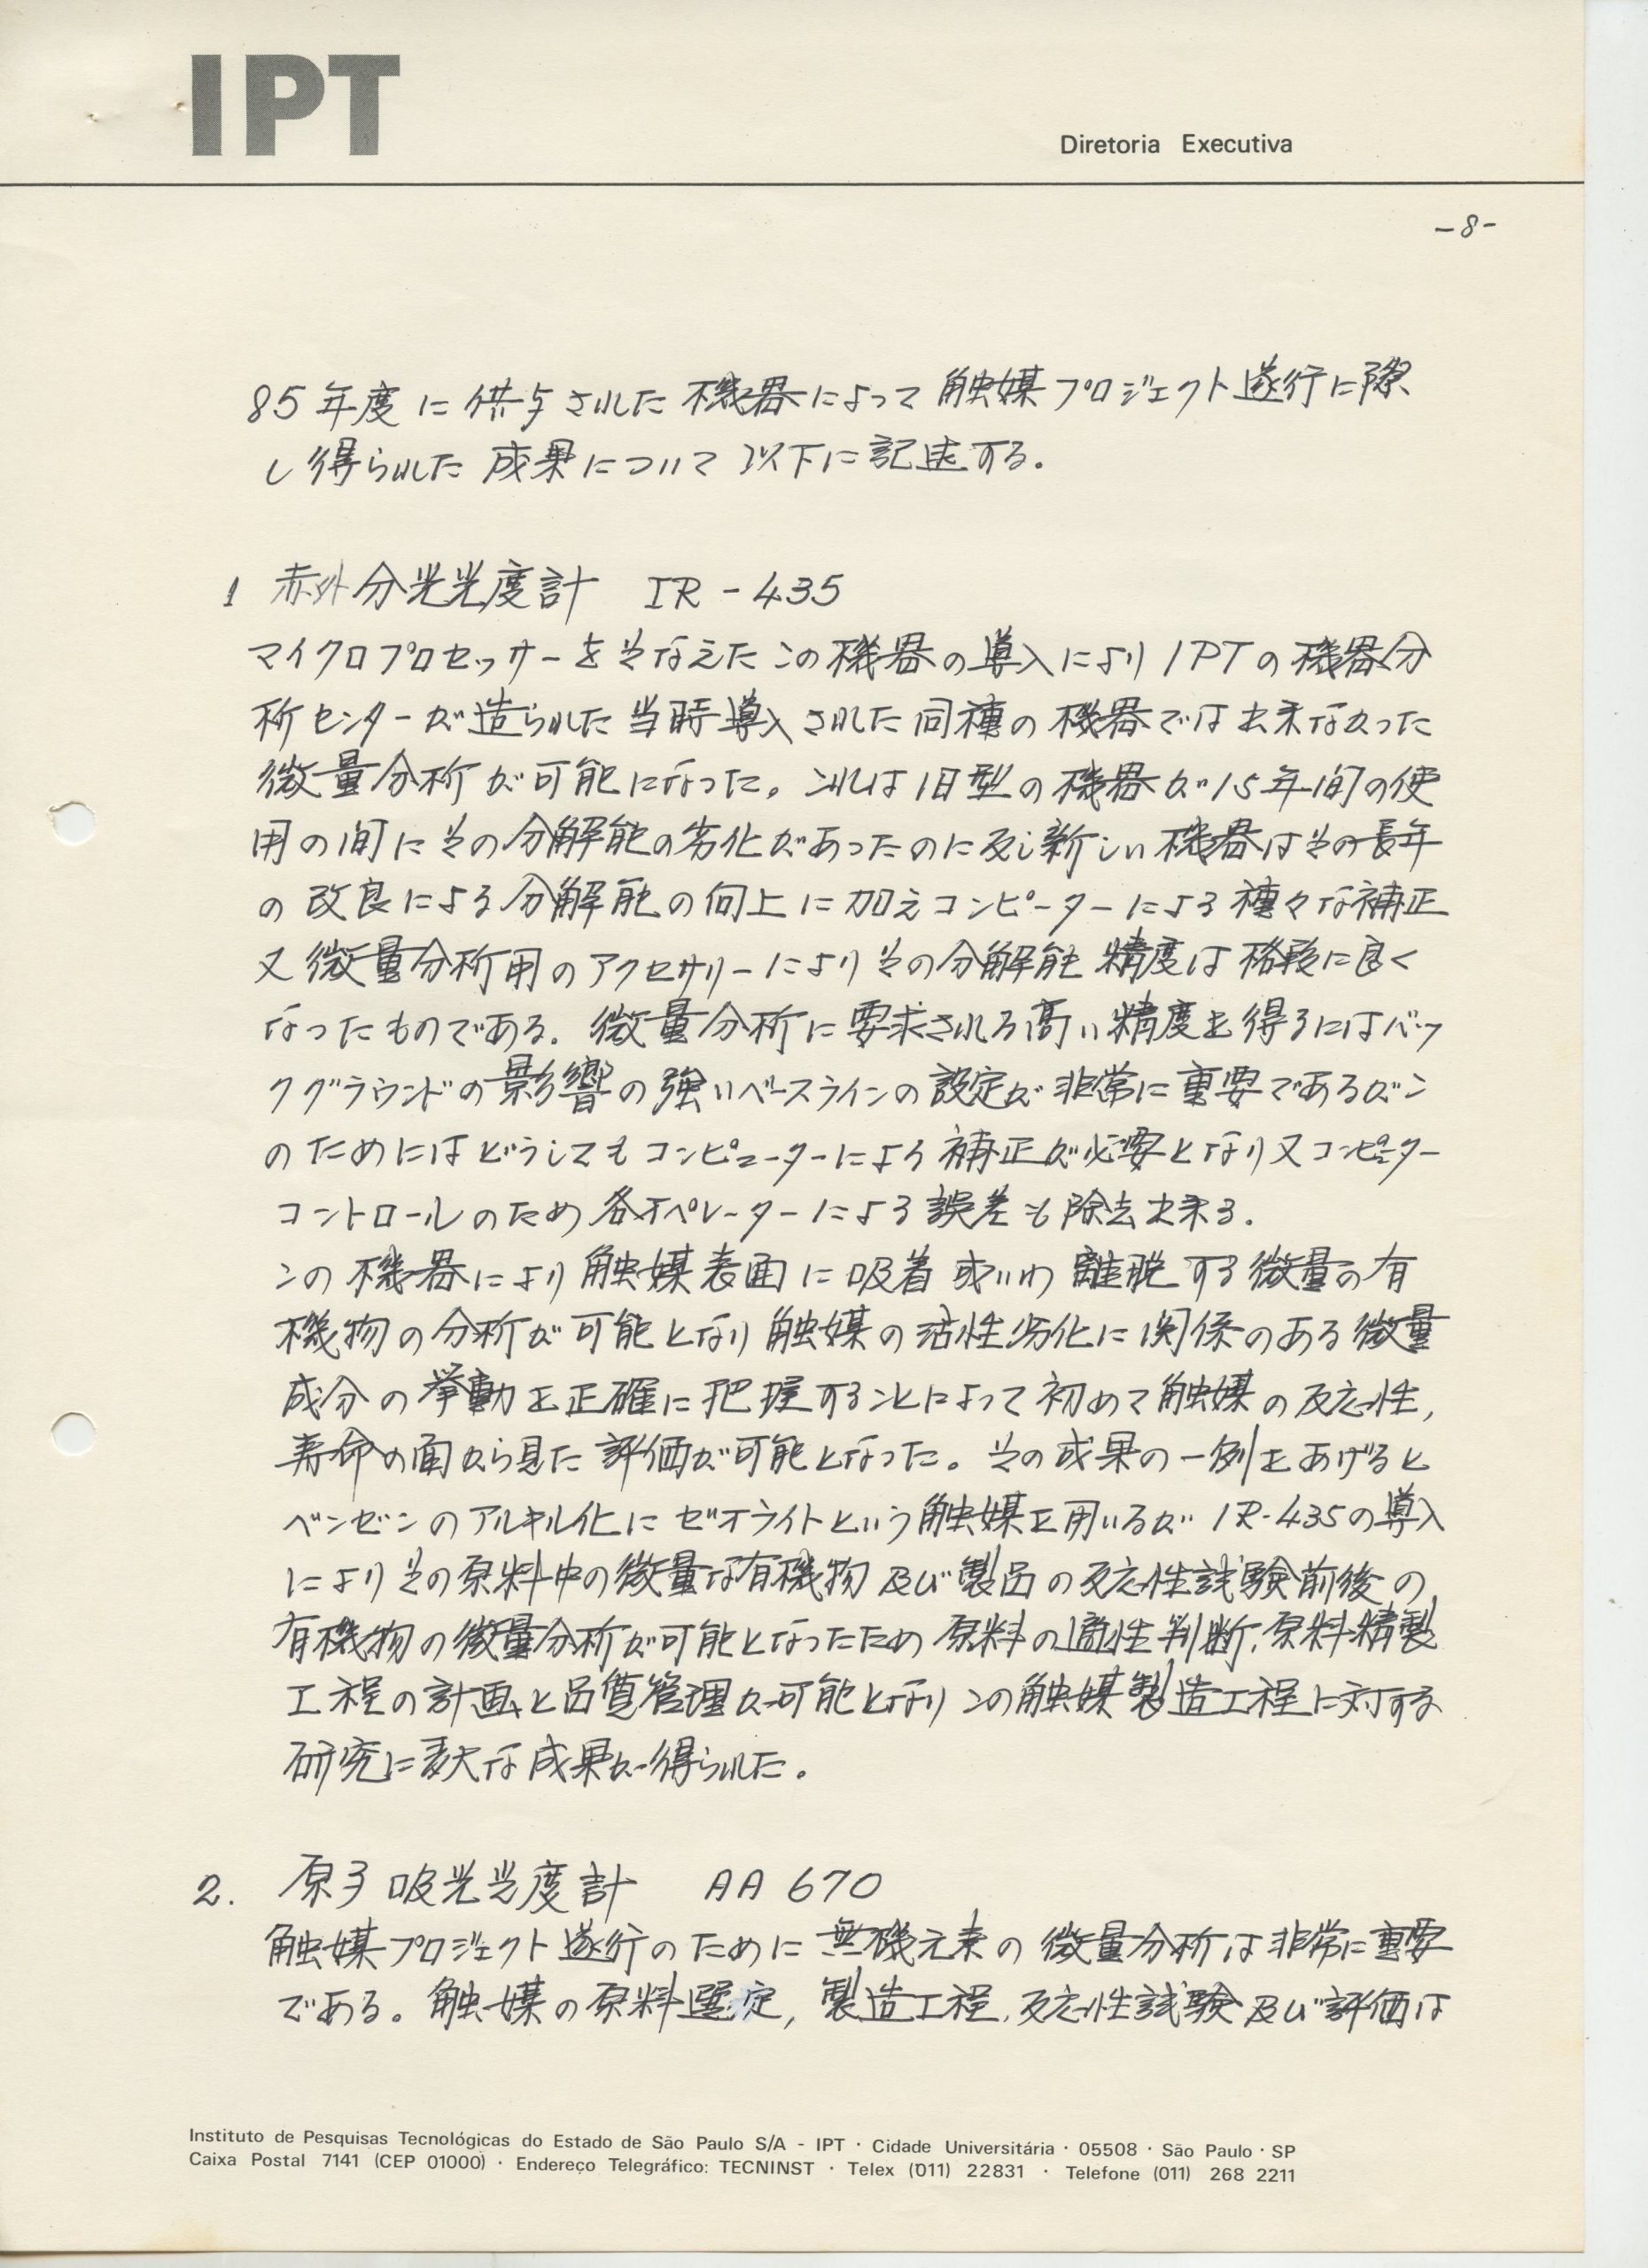 IPT
Diretoria Executiva
-8-
85年度に供与された機器によって触媒プロジェクト遂行に際
し得られた成果について以下に記述する。
1 赤外分光光度計 IR-435
マイクロプロセッサーをそなえたこの機器の導入によりIPTの機器分
析センターが造られた当時導入された同種の機器では出来なかった
微量分析が可能になった。これは旧型の機器が15年間の使
用の間にその分解能の劣化があったのに反し新しい機器はその長年
の改良による分解能の向上に加えコンピーターによる種々な補正
又微量分析用のアクセサリーによりその分解能精度は格段に良く
なったものである。微量分析に要求される高い精度を得るにはバッ
クグラウンドの影響の強いベースラインの設定が非常に重要であるがこ
のためにはどうしてもコンピューターによる補正が必要となり又コンピューター
コントロールのため各オペレーターによる誤差も除去出来る。
この機器により触媒表面に吸着或いわ離脱する微量の有
機物の分析が可能となり触媒の活性劣化に関係のある微量
成分の挙動を正確に把握することによって初めて触媒の反応性,
寿命の面から見た評価が可能となった。その成果の一例をあげると
ベンゼンのアルキル化にゼオライトという触媒を用いるがIR-435の導入
によりその原料中の微量な有機物及び製品の反応性試験前後の
有機物の微量分析が可能となったため原料の適性判断,原料精製
工程の計画と品質管理が可能となりこの触媒製造工程に対する
研究に多大な成果が得られた。
2. 原子吸光光度計 AA 670
触媒プロジェクト遂行のために無機元素の微量分析は非常に重要
である。触媒の原料選定,製造工程,反応性試験及び評価は
Instituto de Pesquisas Tecnológicas do Estado de São Paulo S/A - IPT · Cidade Universitária · 05508 · São Paulo · SP
Caixa Postal 7141 (CEP 01000) · Endereço Telegráfico: TECNINST · Telex (011) 22831 · Telefone (011) 268 2211